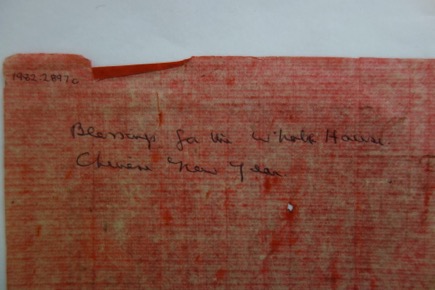 1982-2897c
Blessings for the whole House
Chinese New Year